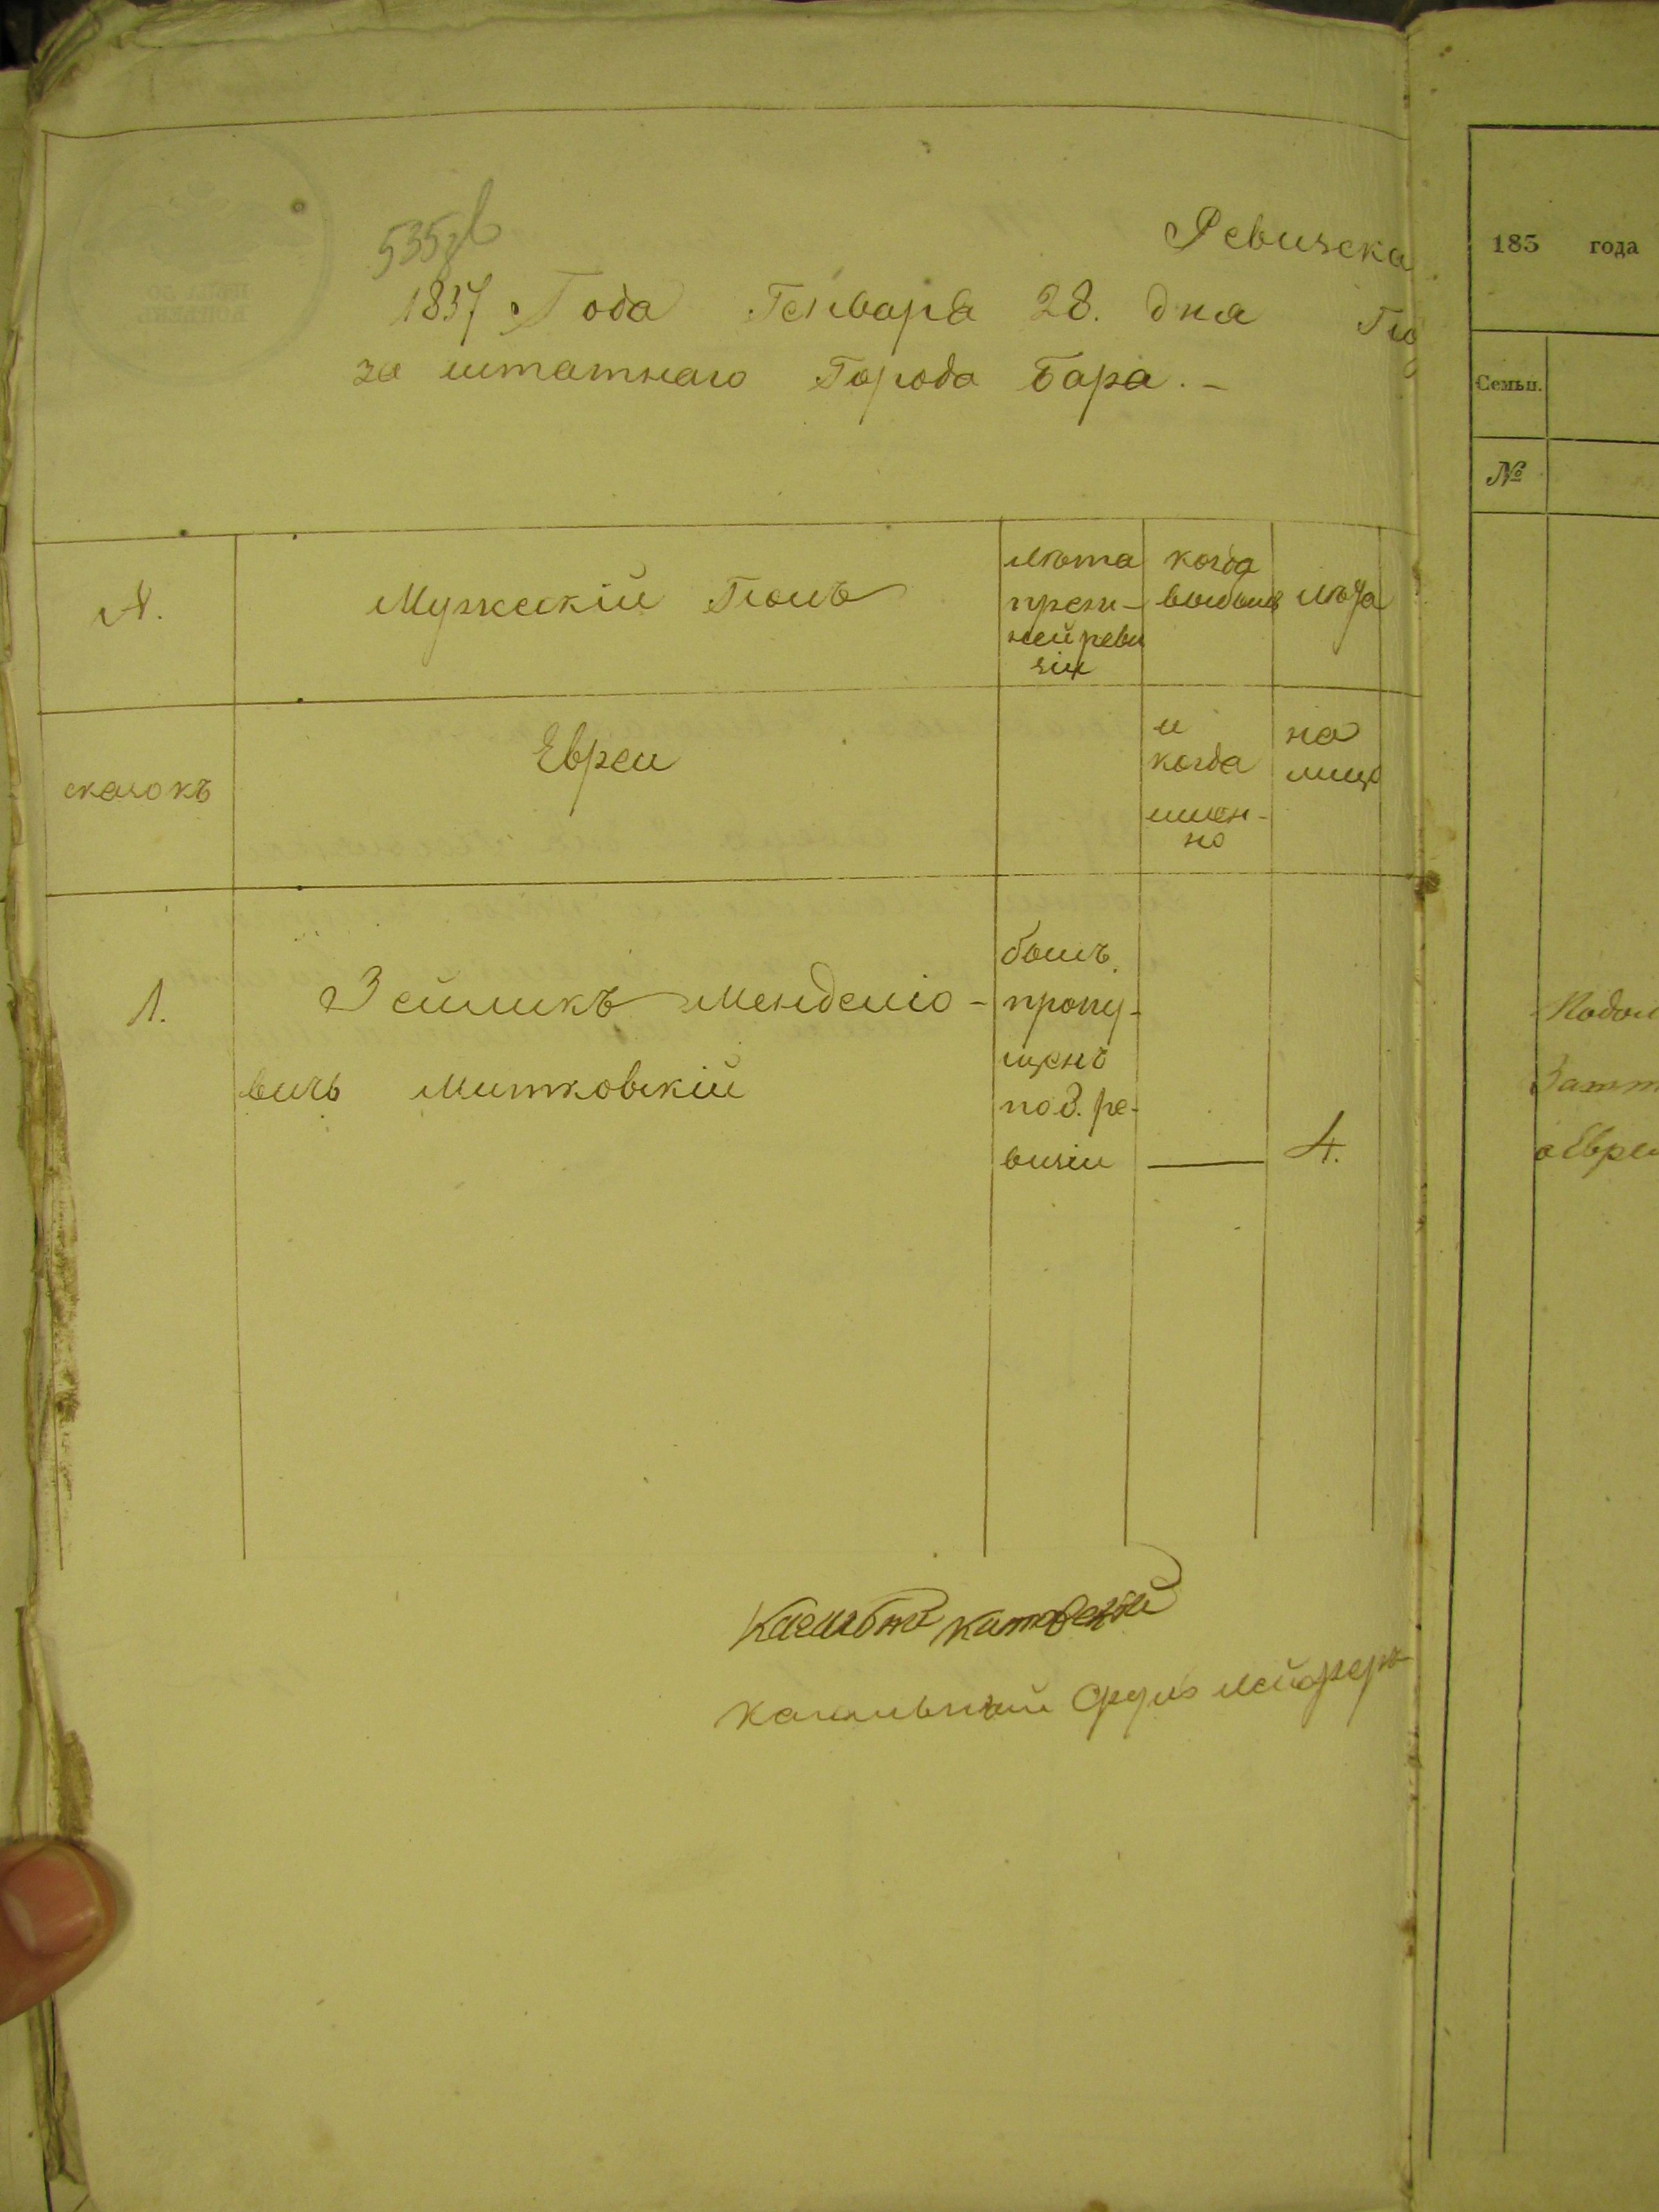 535
Ревизска
1837 Года Генваря 28. дня По
за штатнаго Города Бара. –
№.
Мужескій Полъ
лѣта
преж-
ней реви
зіи
когда
выбылъ
лѣта
сказокъ
Евреи
и
когда
имен-
но
на
лицо
1.
Зейликъ Менделіо-
вичь Митковскій
былъ
пропу-
щенъ
по 8. ре-
визіи
4.
Кагальный
Кагальный Сруль Мейфер
185 года
Семьи.
№
Подол
Затт
о Евреи